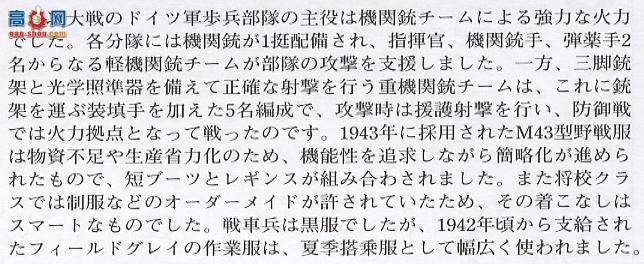 高网
大戦のドイツ軍歩兵部隊の主役は機関銃チームによる強力な火力
でした。各分隊には機関銃が1挺配備され、指揮官、機関銃手、弾薬手2
名からなる軽機関銃チームが部隊の攻撃を支援しました。一方、三脚銃
架と光学照準器を備えて正確な射撃を行う重機関銃チームは、これに銃
架を運ぶ装填手を加えた5名編成で、攻撃時は援護射撃を行い、防御戦
では火力拠点となって戦ったのです。1943年に採用されたM43型野戦服
は物資不足や生産省力化のため、機能性を追求しながら簡略化が進めら
れたもので、短ブーツとレギンスが組み合わされました。また将校クラ
スでは制服などのオーダーメイドが許されていたため、その着こなしは
スマートなものでした。戦車兵は黒服でしたが、1942年頃から支給され
たフィールドグレイの作業服は、夏季搭乗服として幅広く使われました。